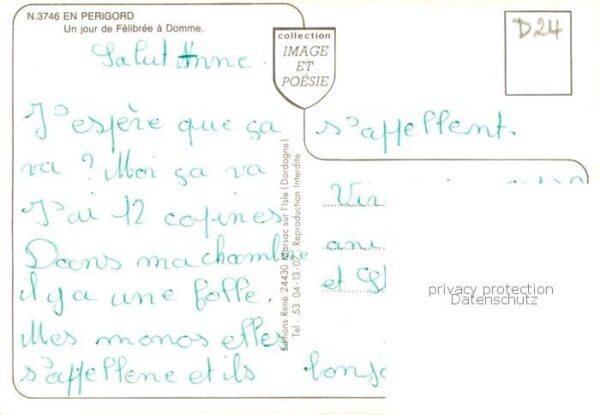 N.3746 EN PERIGORD
Un jour de Félibrée à Domme.
collection
IMAGE
ET
POÉSIE
D24
Salut Anne.
J'espère que ça
va ? Moi ça va
J'ai 12 copines
Dans ma chambre
il y a une folle.
Mes monos elles
s'appellene et ils
s'appellent.
Vir
ani
et
Editions René 24430 Marsac sur l'Isle (Dordogne)
Tel : 53 04-13-02 Reproduction Interdite
privacy protection
Datenschutz